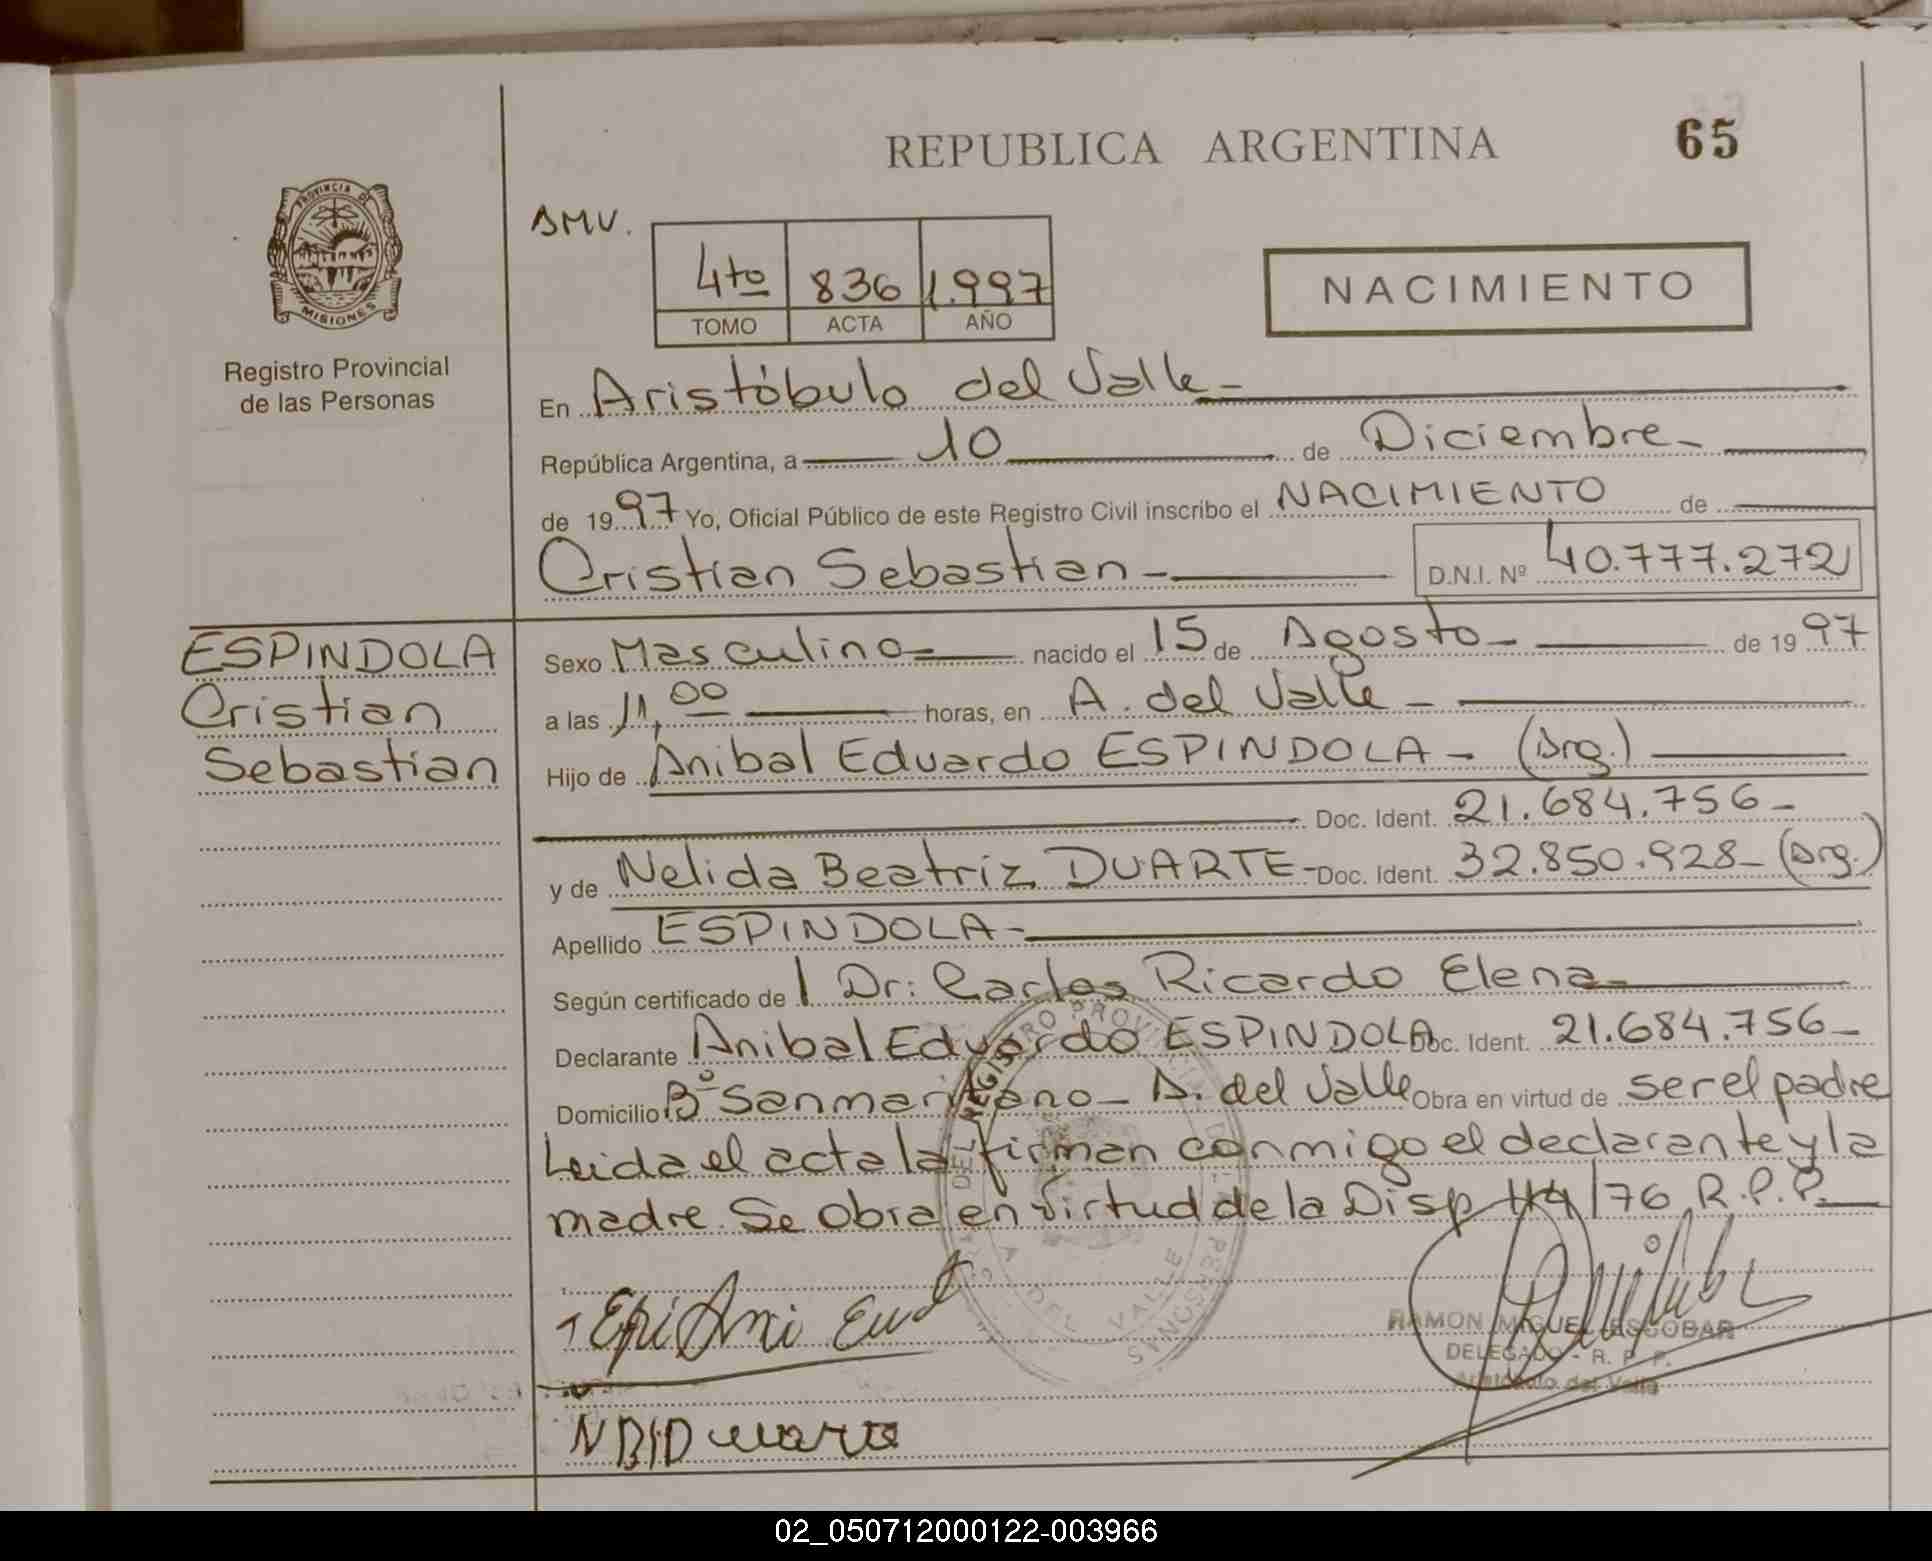 REPUBLICA ARGENTINA
65
PROVINCIA DE
MISIONES
Registro Provincial
de las Personas
AMV.
4to 836 1.997
TOMO ACTA AÑO
NACIMIENTO
En Aristóbulo del Valle -
República Argentina, a 10 de Diciembre -
de 1997 Yo, Oficial Público de este Registro Civil inscribo el NACIMIENTO de
Cristian Sebastian - D.N.I. Nº 40.777.272
ESPINDOLA
Cristian
Sebastian
Sexo Masculino - nacido el 15 de Agosto - de 1997
a las 11,00 horas, en A. del Valle -
Hijo de Anibal Eduardo ESPINDOLA - (Arg.)
Doc. Ident. 21.684.756 -
y de Nelida Beatriz DUARTE - Doc. Ident. 32.850.928 - (Arg.)
Apellido ESPINDOLA -
Según certificado de l Dr: Carlos Ricardo Elena -
Declarante Anibal Eduardo ESPINDOLA Doc. Ident. 21.684.756 -
Domicilio Bº Sanmartiano - A. del Valle Obra en virtud de ser el padre
Leida el acta la firman conmigo el declarante y la
madre. Se obra en virtud de la Disp 114/76 R.P.P.
A DEL VALLE
RAMON MIGUEL ESCOBAR
DELEGADO - R. P. P.
Aristóbulo del Valle
02_050712000122-003966